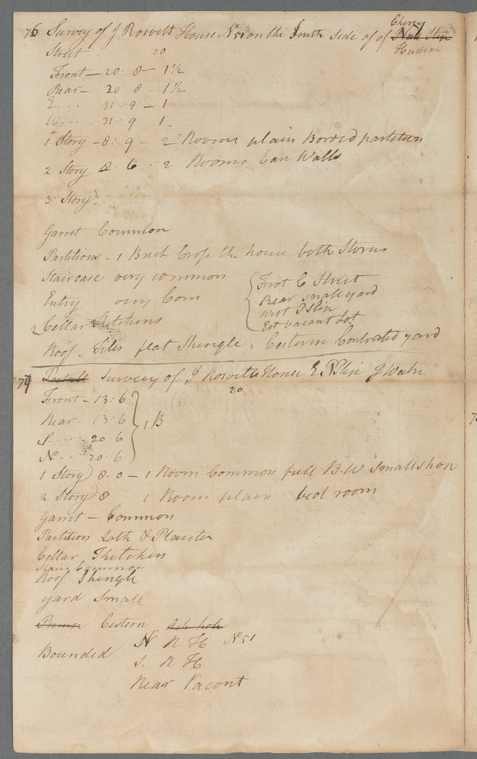 76 Survey of J Rosvelt House No 51 on the South side of of Cherry
Street 20 Hudson
Front - 20. 8 - 1½
Rear - 20 8 - 1½
E .. 31 . 9 - 1
W .. 31 . 9 1.
1 Story - 8. 9 - 2 Rooms plain Borded partition
2 Story 8 6 - 2 Rooms Walls
3 Story
Garret Common
Partitions - 1 Brick Cross the house both Stories
Staircase very common
Entry very Com
Cellar Kitchens
Front C Street
Rear small yard
West
Est vacant Lot
Roof. Tiles flat Shingle. Cestern Contracted yard
79 Survey of J Rosvelts House E
20
Front - 13. 6
Rear 13. 6
S .... 20. 6
N .. 20. 6
1 B
1 Story 8. 0 - 1 Room Common full B.W small shop
2 Story 8 1 Room plain bed room
Garret - Common
Partition Lath & Plaister
Cellar Kitchen
Stairs Common
Roof Shingle
yard Small
Cestern
Bounded N R H No 51
S. R H
Rear Vacant